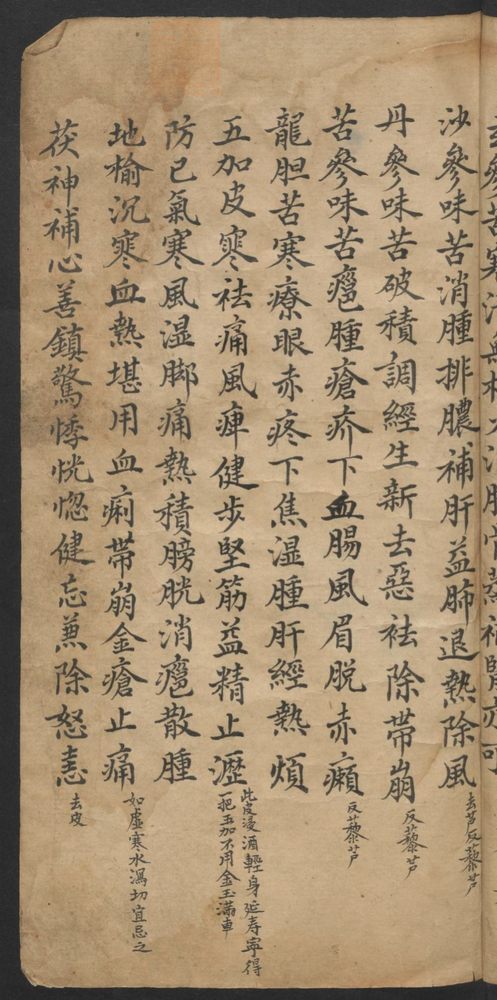 沙參味苦消腫排膿補肝益肺退熱除風
去芦反藜芦
丹參味苦破積調經生新去惡袪除帶崩
反藜芦
苦參味苦癰腫瘡疥下血腸風眉脫赤癩
反藜芦
龍胆苦寒療眼赤疼下焦湿腫肝經熱煩
五加皮寒袪痛風痺健步堅筋益精止瀝
此皮浸酒輕身延寿寧得
一把五加不用金玉滿車
防已氣寒風湿脚痛熱積膀胱消癰散腫
地榆沉寒血熱堪用血痢帶崩金瘡止痛
如虛寒水瀉切宜忌之
茯神補心善鎮驚悸恍惚健忘蒹除怒恚
去皮